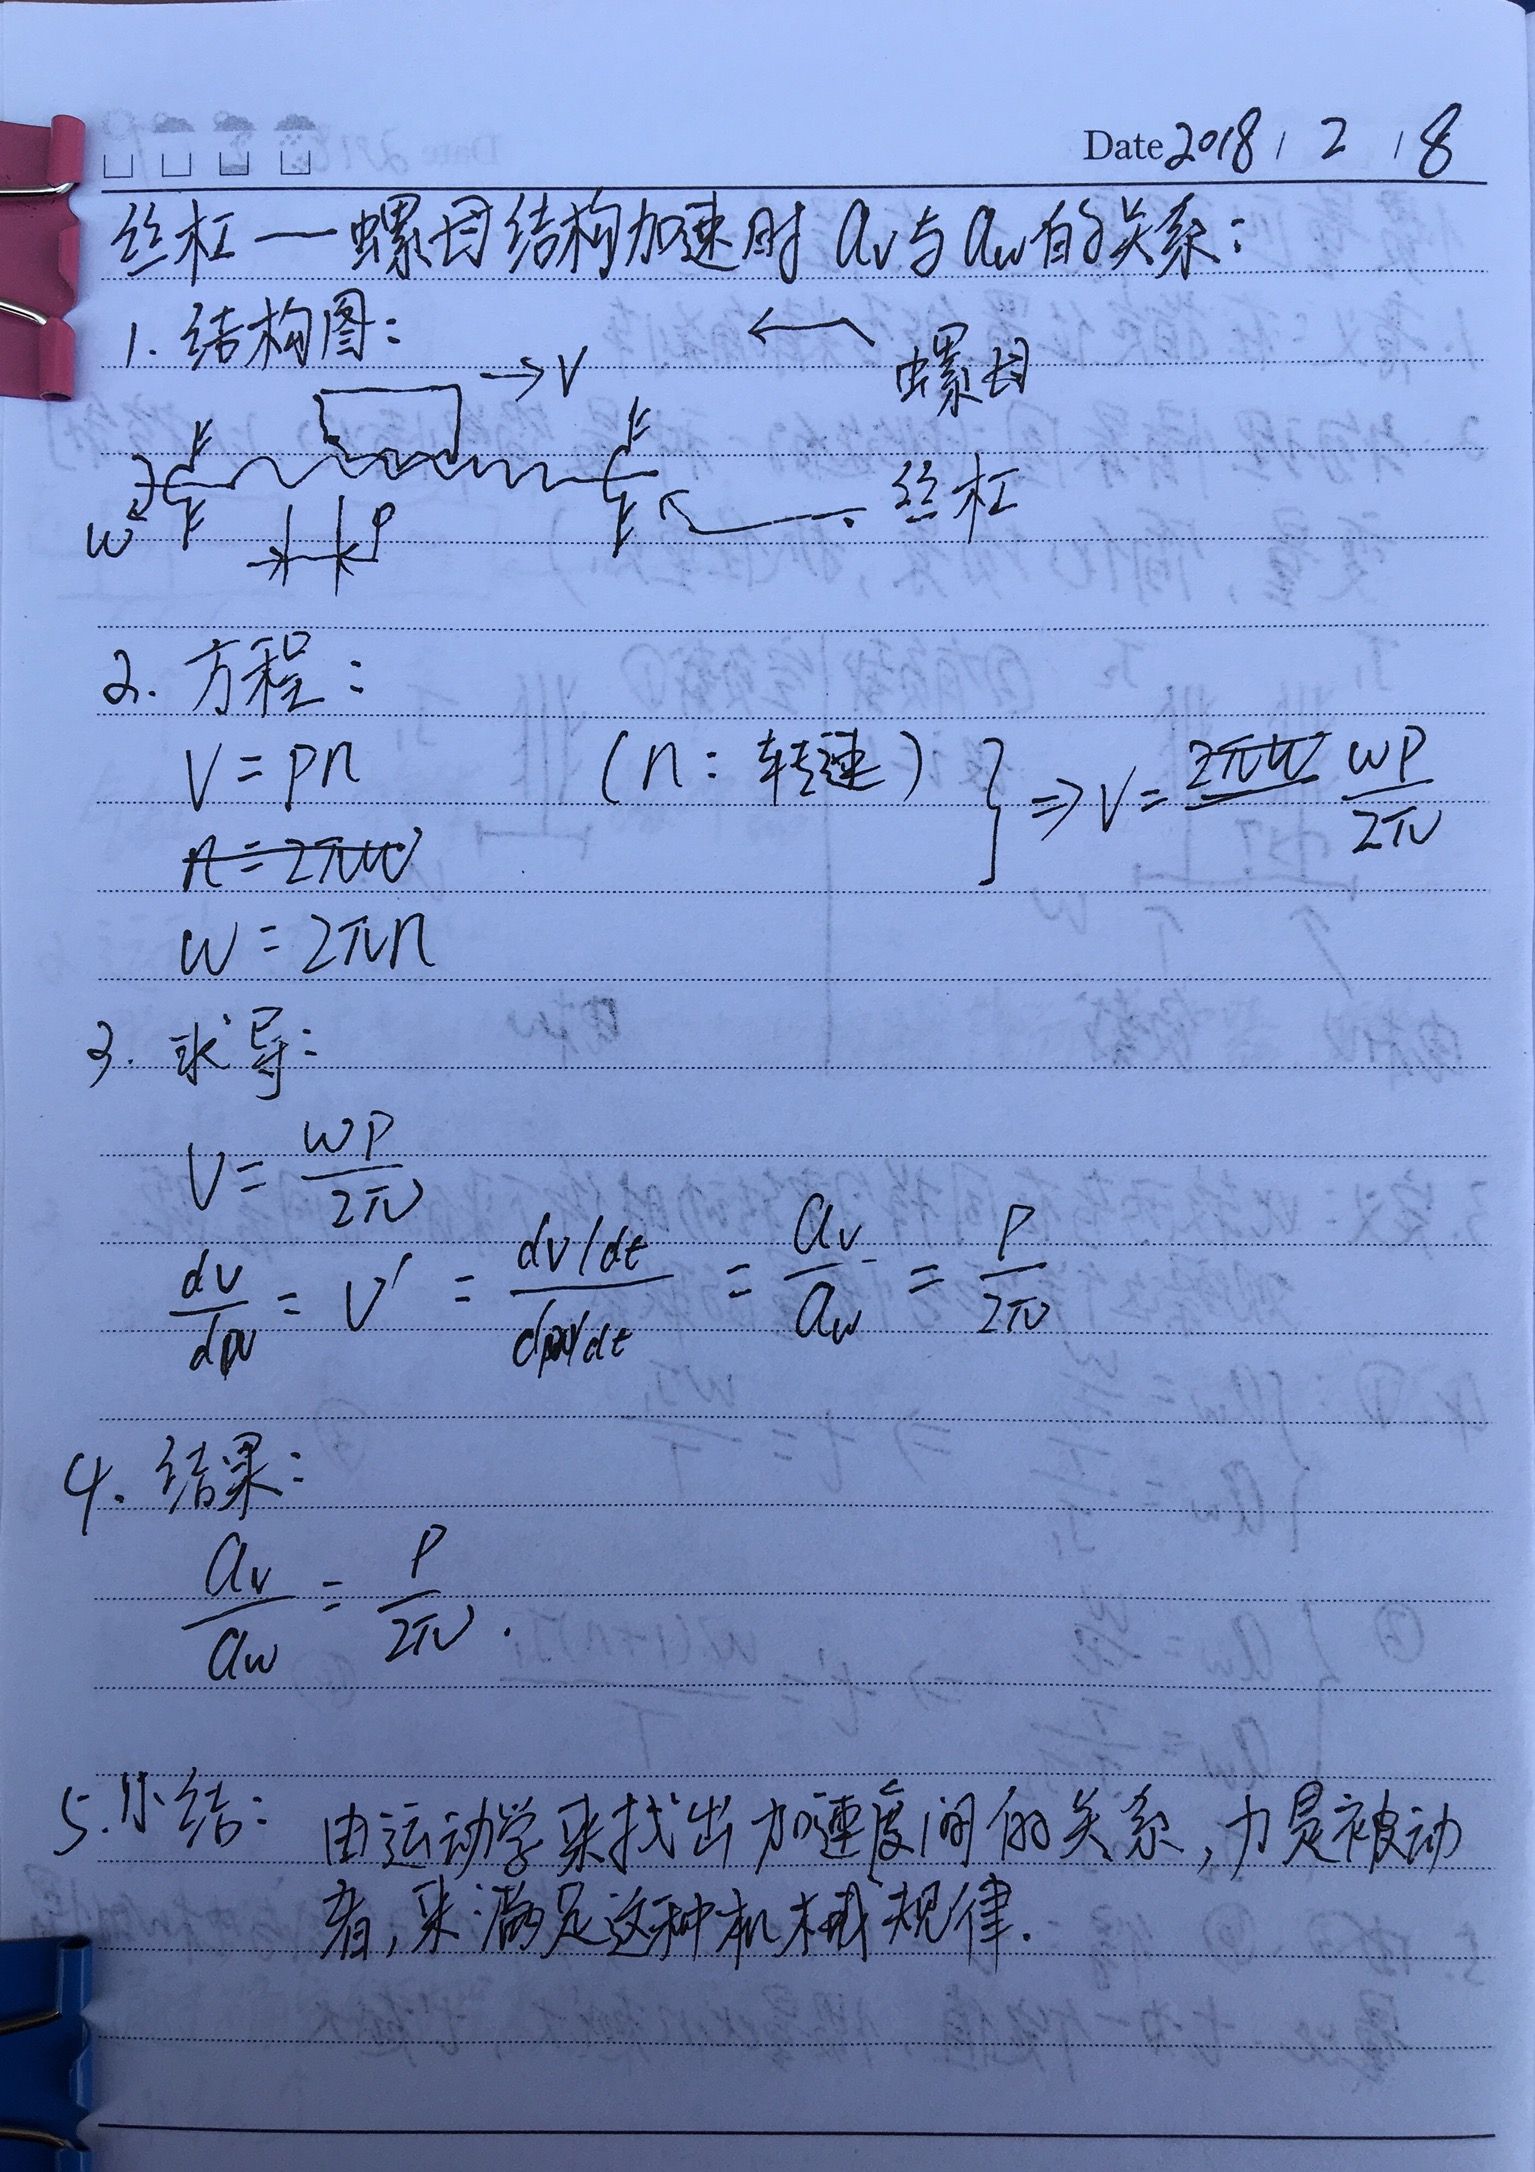 Date 2018 / 2 / 8
丝杠—螺母结构加速时 av与aw的关系:
1. 结构图:
→V
螺母
丝杠
w
P
2. 方程:
V=Pn (n: 转速) } ⇒ V= ~~2πw~~ wP/2π
~~n=2πw~~
w=2πn
3. 求导:
V= wP/2π
dv/dw = V′ = (dv/dt)/(dw/dt) = av/aw = P/2π
4. 结果:
av/aw = P/2π .
5.小结: 由运动学来找出加速度间的关系,力是被动
者,来满足这种机械规律.